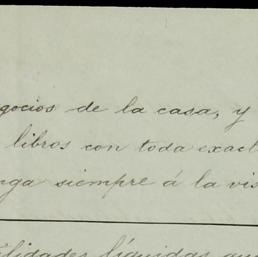 gocios de la casa, y
libros con toda exact
nga siempre á la vis
ilidades líquidas que